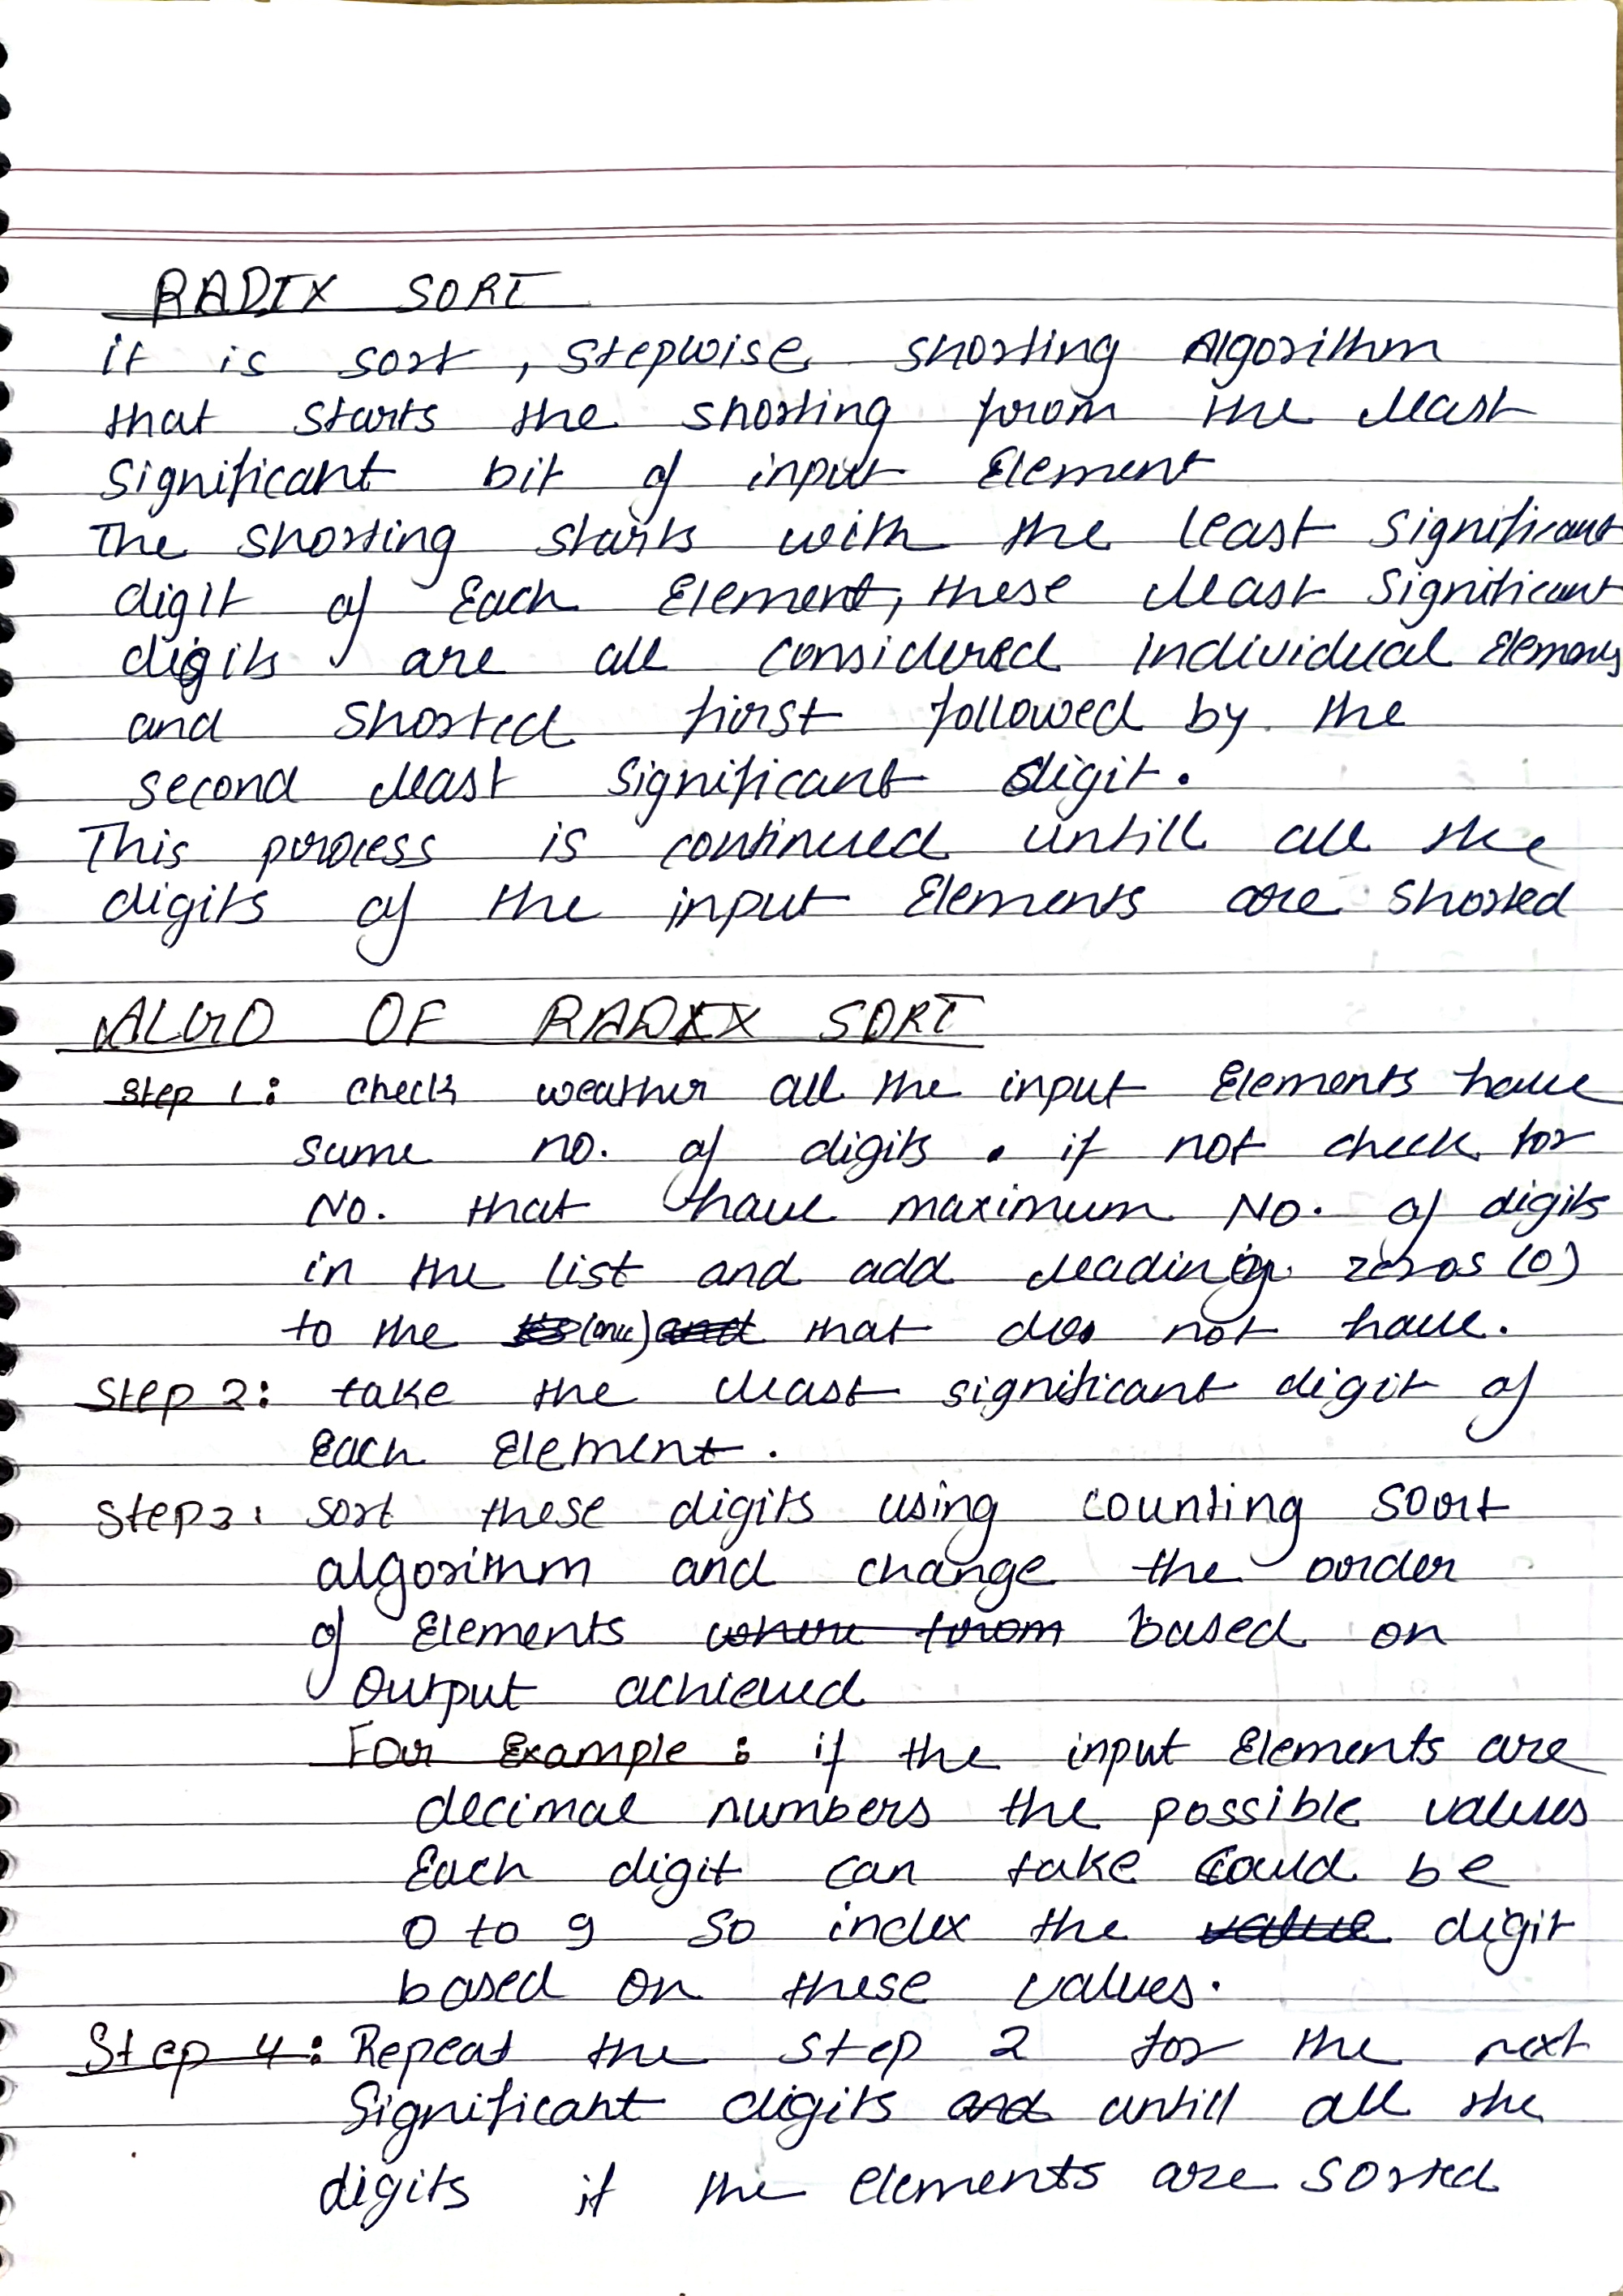 RADIX SORT
it is sort, stepwise shorting Algorithm
that starts the shorting from the least
Significant bit of input Element
The shorting starts with the least Significant
digit of Each Element, these least Significant
digits are all considered individual Elements
and Shorted first followed by the
second least Significant digit.
This process is continued untill all the
digits of the input Elements are Shorted
ALGO OF RADIX SORT
Step 1: Check weather all the input Elements have
same no. of digits. if not check for
No. that have maximum No. of digits
in the list and add leading zeros (0)
to the (one) that does not have.
Step 2: take the least significant digit of
Each Element.
Step 3: sort these digits using counting Sort
algorithm and change the order
of Elements based on
Output achieved
For Example: if the input Elements are
decimal numbers the possible values
Each digit can take could be
0 to 9 So index the digit
based on these values.
Step 4: Repeat the step 2 for the next
Significant digits untill all the
digits if the elements are sorted